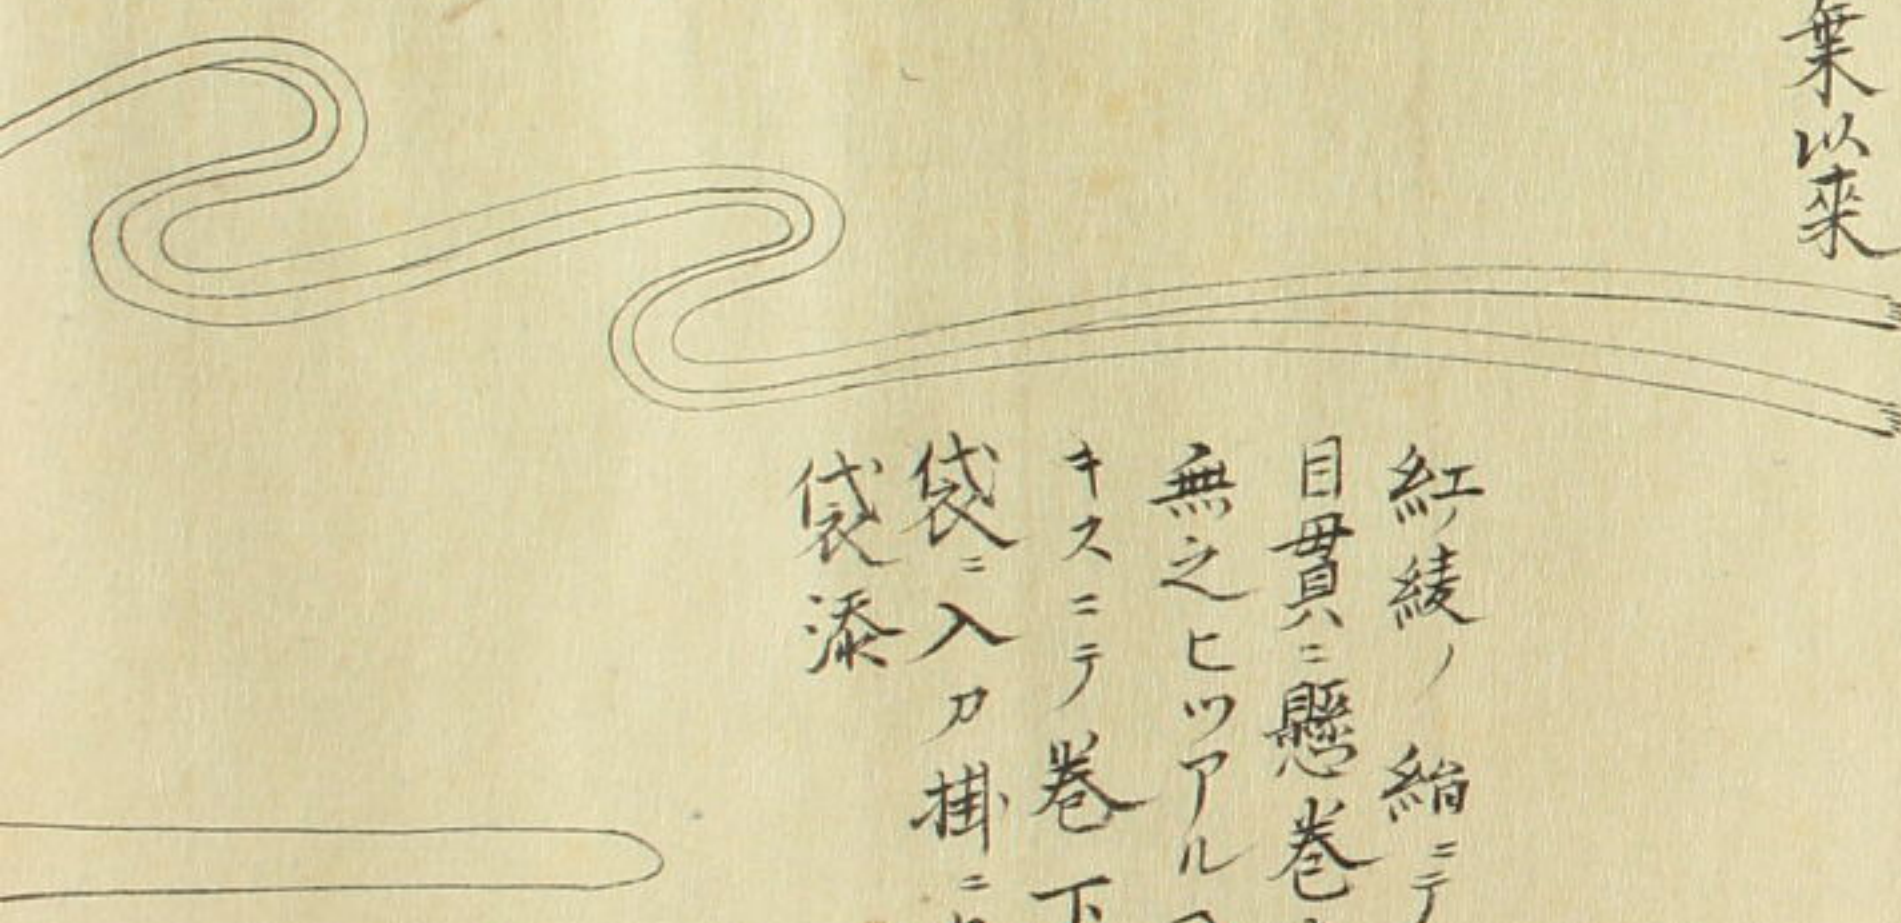 葉以來
紅綾ノ絈ニテ
目貫ニ懸巻
無之ヒツアル
キスニテ巻下
袋ニ入刀掛ニ
袋添